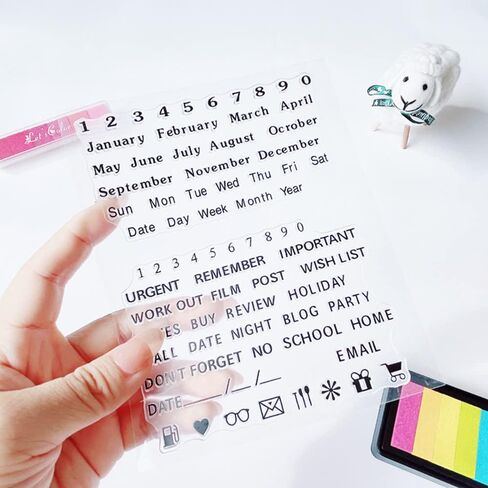 1 2 3 4 5 6 7 8 9 0
January February March April
May June July August Octorber
September November December
Sun Mon Tue Wed Thu Fri Sat
Date Day Week Month Year
Let's Color
1 2 3 4 5 6 7 8 9 0
URGENT REMEMBER IMPORTANT
WORK OUT FILM POST WISH LIST
BUY REVIEW HOLIDAY
DATE NIGHT BLOG PARTY
DON'T FORGET NO SCHOOL HOME
EMAIL
DATE___/__/__